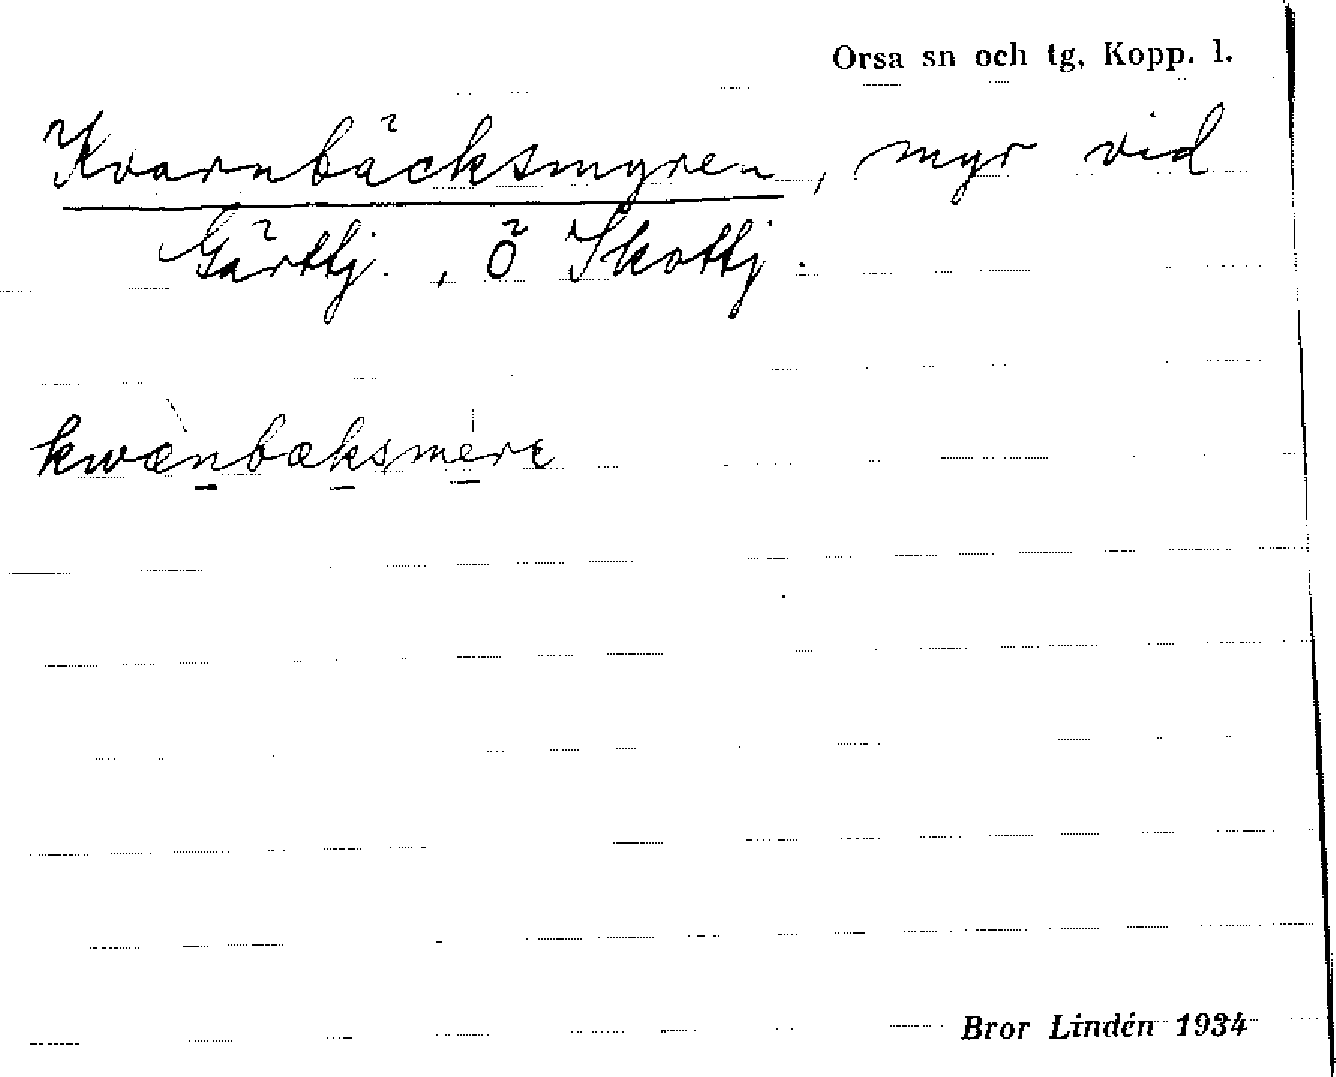 Orsa sn och tg, Kopp. l.
Kvarnbäcksmyren, myr vid
Gärttj., Ö Skottj.
kwænbæksmerɛ
Bror Lindén 1934